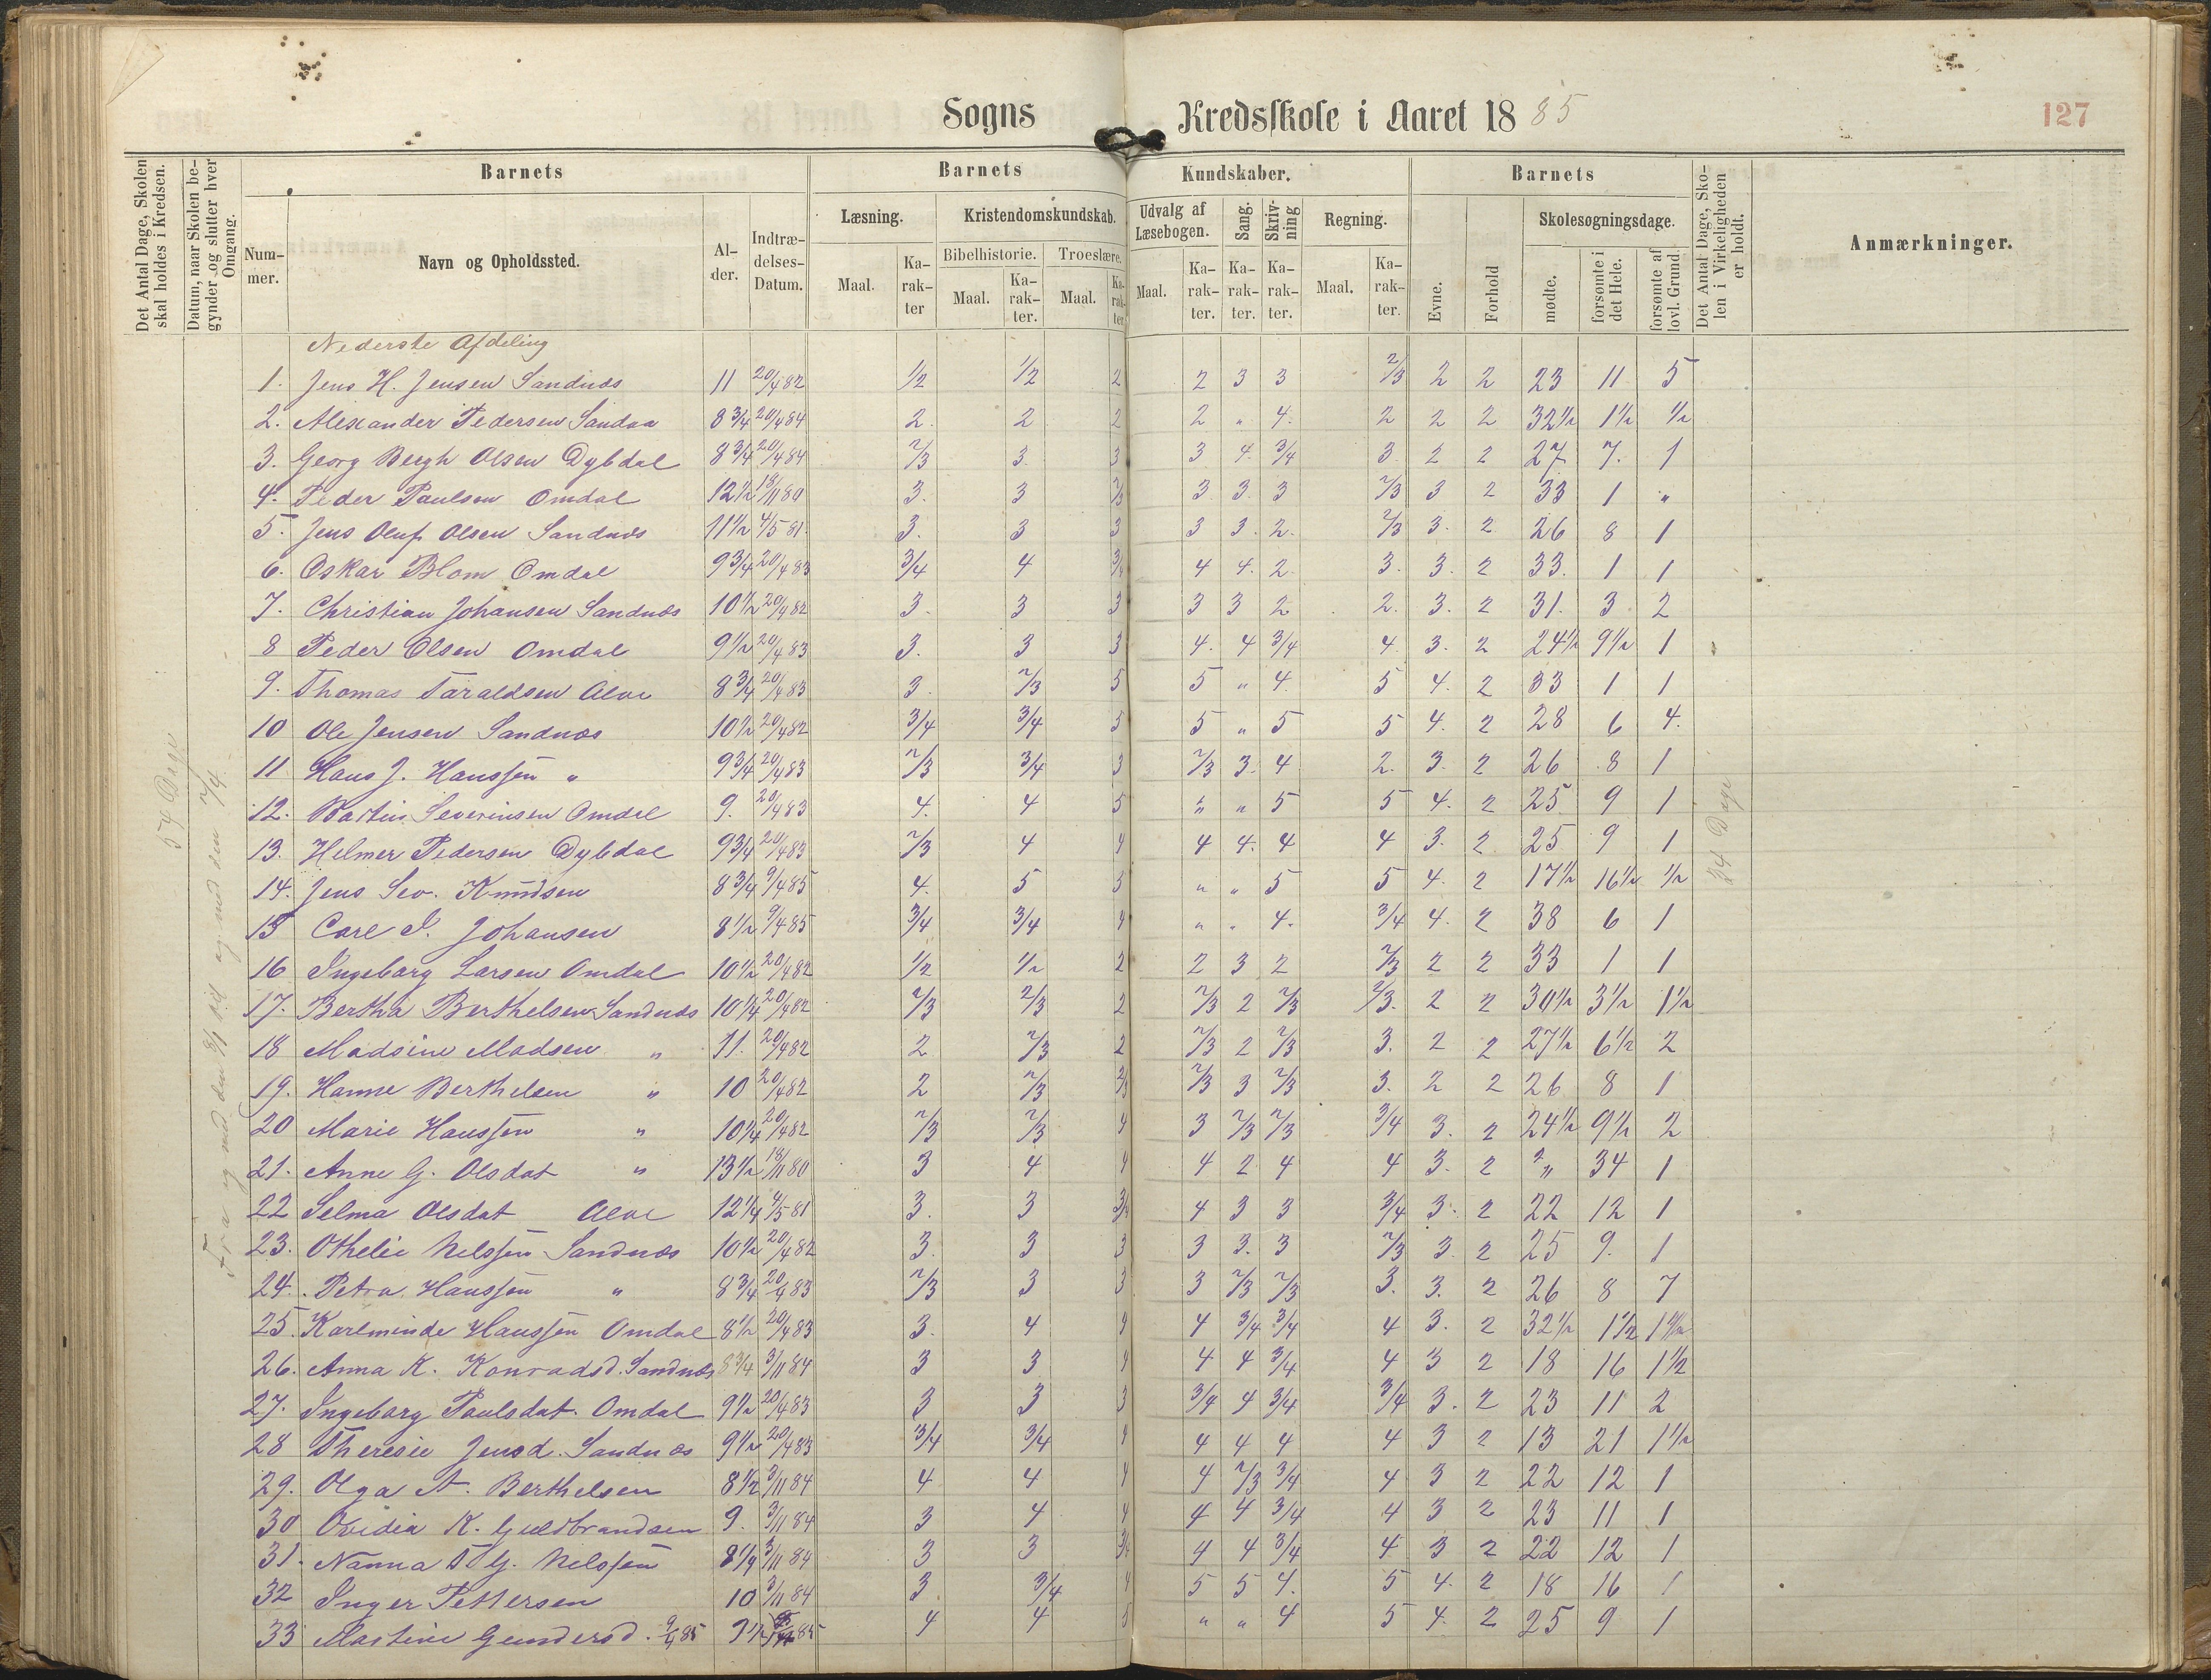 Sogns Kredsskole i Aaret 1885
127
Det Antal Dage, Skolen skal holdes i Kredsen.
Datum, naar Skolen begynder og slutter hver Omgang.
Barnets
Nummer.
Navn og Opholdssted.
Alder.
Indtrædelses-Datum.
Barnets Kundskaber.
Læsning.
Maal.
Karakter
Kristendomskundskab.
Bibelhistorie.
Maal.
Karakter.
Troeslære.
Maal.
Karakter
Udvalg af Læsebogen.
Maal.
Karakter.
Sang.
Karakter.
Skrivning
Karakter.
Regning.
Maal.
Karakter.
Barnets
Evne.
Forhold
Skolesøgningsdage.
mødte.
forsømte i det Hele.
forsømte af lovl. Grund.
Det Antal Dage, Skolen i Virkeligheden er holdt.
Anmærkninger.
54 Dage
34 Dage
Nederste Afdeling
1. Jens H. Jensen Sandnæs 11 20/4 82 1/2 1/2 2 2 3 3 2/3 2 2 23 11 5
2. Alexander Pedersen Sandaa 8 3/4 20/4 84 2. 2 2 2 " 4. 2 2 2 32 1/2 1 1/2 1/2
3. Georg Bergh Olsen Dybdal 8 3/4 20/4 84 2/3 3. 3 3 4. 3/4 3. 2 2 27 7. 1
4. Peder Paulsen Omdal 12 1/2 18/11 80 3. 3 2/3 3 3. 3 2/3 3 2 33 1 "
5. Jens Oluf Olsen Sandnæs 11 1/2 4/5 81. 3. 3 3 3 3. 2. 2/3 3. 2 26 8 1
6. Oskar Blom Omdal 9 3/4 20/4 83 3/4 4 3/4 4 4. 2. 3. 3. 2 33. 1 1
7. Christian Johansen Sandnæs 10 1/2 20/4 82 3. 3 3 3 3 2 2. 3. 2 31. 3 2
8 Peder Olsen Omdal 9 1/2 20/4 83 3. 3 3 4. 4 3/4 4. 3. 2 24 1/2 9 1/2 1
9. Thomas Taraldsen Alve 8 3/4 20/4 83 3. 2/3 5 5 " 4. 5 4. 2 33 1 1
10 Ole Jensen Sandnæs 10 1/2 20/4 82 3/4 3/4 5 5 " 5 5 4. 2 28 6 4.
11 Hans J. Hanssen " 9 3/4 20/4 83 2/3 3/4 3 2/3 3. 4 2. 3. 2 26 8 1
12. Martin Severinsen Omdal 9. 20/4 83 4. 4 5 " " 5 5 4. 2 25 9 1
13. Helmer Pedersen Dybdal 9 3/4 20/4 83 2/3 4 4 4 4. 4 4 3. 2 25 9 1
14. Jens Sev. Knudsen 8 3/4 9/4 85 4. 5 5 " " 5 5 4. 2 17 1/2 16 1/2 1/2
15 Carl J. Johansen 8 1/2 9/4 85 3/4 3/4 4 " " 4. 3/4 4. 2 38 6 1
16 Ingeborg Larsen Omdal 10 1/2 20/4 82 1/2 1/2 2 2 3 2 2/3 2 2 33 1 1
17. Bertha Berthelsen Sandnæs 10 1/4 20/4 82 2/3 2/3 2 2/3 2 2/3 2/3. 2 2 30 1/2 3 1/2 1 1/2
18 Madsine Madsen " 11. 20/4 82 2 2/3 2 2/3 2 2/3 3. 2 2 27 1/2 6 1/2 2
19. Hanne Berthelsen " 10 20/4 82 2 2/3 2/3 2/3 3 2/3 3. 2 2 26 8 1
20 Marie Hanssen " 10 1/4 20/4 82 2/3 2/3 4 3 2/3 2/3 3/4 3. 2 24 1/2 9 1/2 2
21. Anne G. Olsdat " 13 1/2 18/11 80 3 4 4 4 2 4 4 3. 2 " 34 1
22 Selma Olsdat Alve 12 1/4 4/5 81 3. 3 3/4 4 3 3 3/4 3. 2 22 12 1
23. Othelie Nelssen Sandnæs 10 1/2 20/4 82 3. 3 3 3 3. 3 2/3 3. 2 25 9. 1
24. Petra Hanssen " 8 3/4 20/4 83 2/3 3 3 3 2/3 2/3 3. 3. 2 26 8 7
25. Karlminde Hanssen Omdal 8 1/2 20/4 83 3. 4 4 4 3/4 3/4 4 3. 2 32 1/2 1 1/2 1 1/2
26. Anna K. Konradsd. Sandnæs 8 3/4 3/11 84 3 3 4 4 4 3/4 4 3 2 18 16 1 1/2
27. Ingeborg Paulsdat. Omdal 9 1/2 20/4 83 3 3 3 3/4 4 3/4 3/4 3. 2 23 11 2
28 Theresie Jensd. Sandnæs 9 1/2 20/4 83 3/4 3/4 4 4 4 4 4 3 2 13 21 1 1/2
29. Olga A. Berthelsen 8 1/2 3/11 84 4 4 4 4 2/3 3/4 4 3 2 22 12 1
30 Ovidia K. Guldbrandsen 9. 3/11 84 3 4 4 4 4 3/4 4 3 2 23 11 1
31. Nanna T G. Nelssen 8 1/2 3/11 84 3 3 3/4 4 4 3/4 4 3 2 22 12 1
32 Inger Pettersen 10 3/11 84 3 3/4 4 5 5 4. 5 4. 2 18 16 1
33 Mastine Gundersd. 9/4 85 9 1/2 85 4 4 5 " " 4 5 4. 2 25 9 1